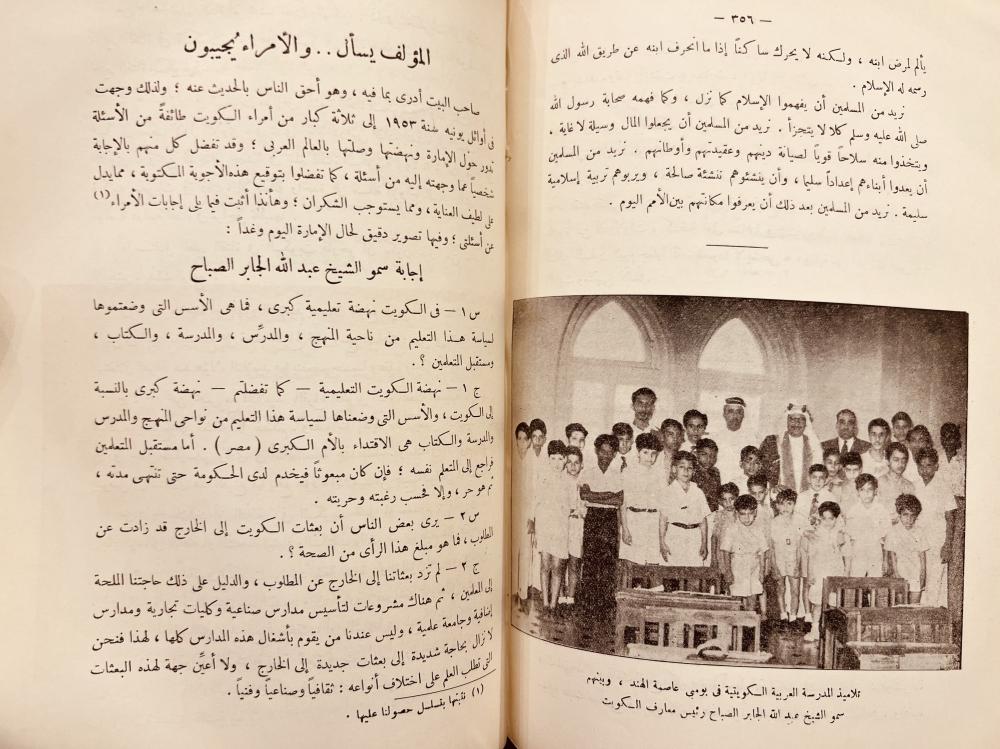 — ٣٥٦ —
يألم لمرض ابنه ، ولكنه لا يحرك ساكناً إذا ما انحرف ابنه عن طريق الله الذى
رسمه له الإسلام .
نريد من المسلمين أن يفهموا الإسلام كما نزل ، وكما فهمه صحابة رسول الله
صلى الله عليه وسلم كلا لا يتجزأ . نريد من المسلمين أن يجعلوا المال وسيلة لا غاية ،
ويتخذوا منه سلاحاً قوياً لصيانة دينهم وعقيدتهم وأوطانهم . نريد من المسلمين
أن يعدوا أبناءهم إعداداً سليما ، وأن ينشئوهم تنشئة صالحة ، ويربوهم تربية إسلامية
سليمة . نريد من المسلمين بعد ذلك أن يعرفوا مكانتهم بين الأمم اليوم .
تلاميذ المدرسة العربية الكويتية فى بومبى عاصمة الهند ، وبينهم
سمو الشيخ عبد الله الجابر الصباح رئيس معارف الكويت
المؤلف يسأل . . والأمراء يُجيبون
صاحب البيت أدرى بما فيه ، وهو أحق الناس بالحديث عنه ؛ ولذلك وجهت
فى أوائل يونيه سنة ١٩٥٣ إلى ثلاثة كبار من أمراء الكويت طائفةً من الأسئلة
تدور حول الإمارة ونهضتها وصلتها بالعالم العربى ؛ وقد تفضل كل منهم بالإجابة
شخصياً عما وجهته إليه من أسئلة ، كما تفضلوا بتوقيع هذه الأجوبة المكتوبة ، مما يدل
على لطيف العناية ، ومما يستوجب الشكران ؛ وهأنذا أثبت فيما يلى إجابات الأمراء (١)
عن أسئلتى ؛ وفيها تصوير دقيق لحال الإمارة اليوم وغداً :
إجابة سمو الشيخ عبد الله الجابر الصباح
س ١ — فى الكويت نهضة تعليمية كبرى ، فما هى الأسس التى وضعتموها
لسياسة هـذا التعليم من ناحية المنهج ، والمدرِّس ، والمدرسة ، والكتاب ،
ومستقبل المتعلمين ؟ .
ج ١ — نهضة الكويت التعليمية — كما تفضلتم — نهضة كبرى بالنسبة
إلى الكويت ، والأسس التى وضعناها لسياسة هذا التعليم من نواحى المنهج والمدرس
والمدرسة والكتاب هى الاقتداء بالأم الكبرى ( مصر ) . أما مستقبل المتعلمين
فراجع إلى المتعلم نفسه ؛ فإن كان مبعوثاً فيخدم لدى الحكومة حتى تنتهى مدته ،
ثم هو حر ، وإلا فحسب رغبته وحريته .
س ٢ — يرى بعض الناس أن بعثات الكويت إلى الخارج قد زادت عن
المطلوب ، فما هو مبلغ هذا الرأى من الصحة ؟ .
ج ٢ — لم تزد بعثاتنا إلى الخارج عن المطلوب ، والدليل على ذلك حاجتنا الملحة
إلى المعلمين ، ثم هناك مشروعات لتأسيس مدارس صناعية وكليات تجارية ومدارس
إضافية وجامعة علمية ، وليس عندنا من يقوم بأشغال هذه المدارس كلها ، لهذا فنحن
لا نزال بحاجة شديدة إلى بعثات جديدة إلى الخارج ، ولا أعيِّن جهة لهذه البعثات
التى تطلب العلم على اختلاف أنواعه : ثقافياً وصناعياً وفنياً .
(١) نثبتها بتسلسل حصولنا عليها .